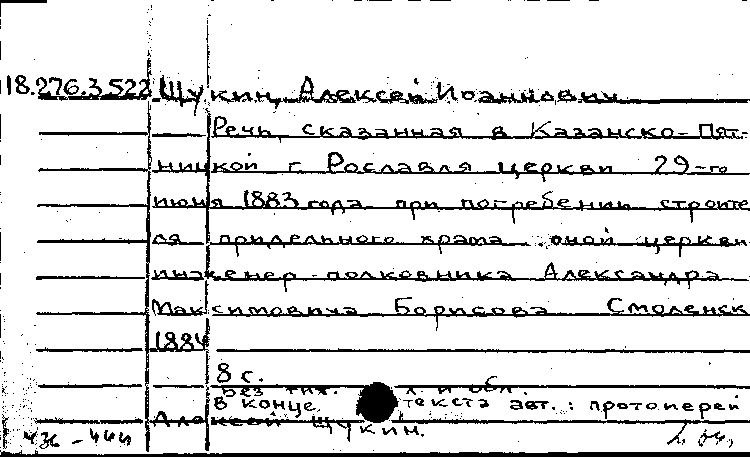 18.276.3.522 Щукин, Алексей Иоаннович
Речь, сказанная в Казанско-Пят-
ницкой г. Рославля церкви 29-го
июня 1883 года при погребении строите
ля придельного храма оной церкви
инженер-полковника Александра
Максимовича Борисова Смоленск
1884
8 с.
Без тит. л. и обл.
В конце текста авт.: протоиерей
Алексей Щукин.